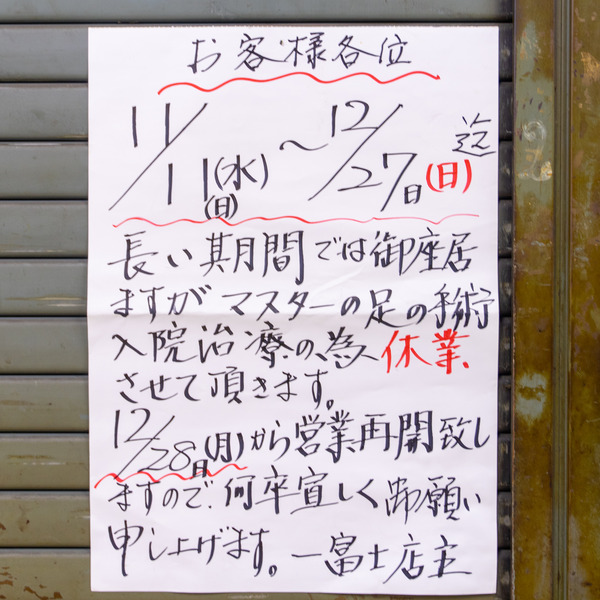 お客様各位
11/11(水)(日)〜12/27日(日)迄
長い期間では御座居
ますがマスターの足の手術
入院治療の、為、休業、
させて頂きます。
12/28日(月)から営業再開致し
ますので、何卒宜しく御願い
申し上げます。一富士店主